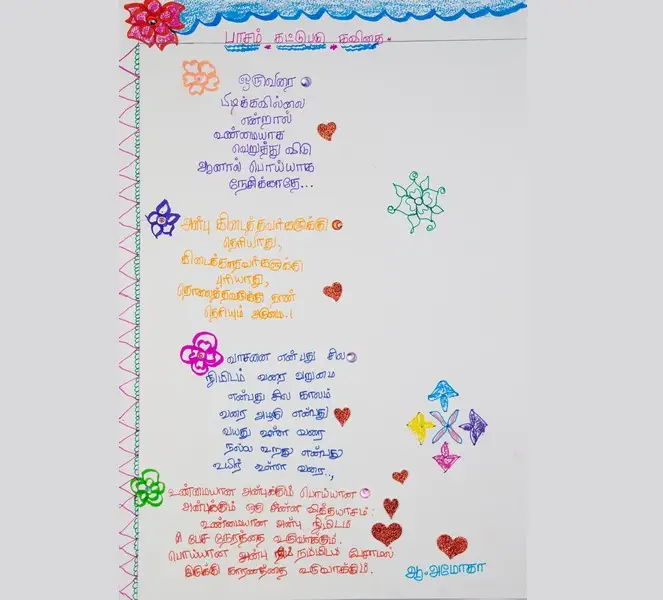 பாசம் கட்டுபடி கவிதை
ஒருவரை
பிடிக்கவில்லை
என்றால்
உண்மையாக
வெறுத்து விடு
ஆனால் பொய்யாக
நேசிக்காதே...
அன்பு கிடைத்தவர்களுக்கு
தெரியாது,
கிடைக்காதவர்களுக்கு
புரியாது,
தொலைத்தவருக்கு தான்
தெரியும் அருமை.!
வாசனை என்பது சில
நிமிடம் வரை வறுமை
என்பது சில காலம்
வரை அழகு என்பது
வயது உள்ள வரை
நல்ல உறவு என்பது
உயிர் உள்ள வரை..,
உண்மையான அன்புக்கும் பொய்யான
அன்புக்கும் ஒரு சின்ன வித்தியாசம்:
உண்மையான அன்பு நிமிடம்
பேச நேரத்தை உருவாக்கும்.
பொய்யான அன்பு நிமிடம் பேசாமல்
இருக்க காரணத்தை உருவாக்கும்.
ஆ.அமோகா